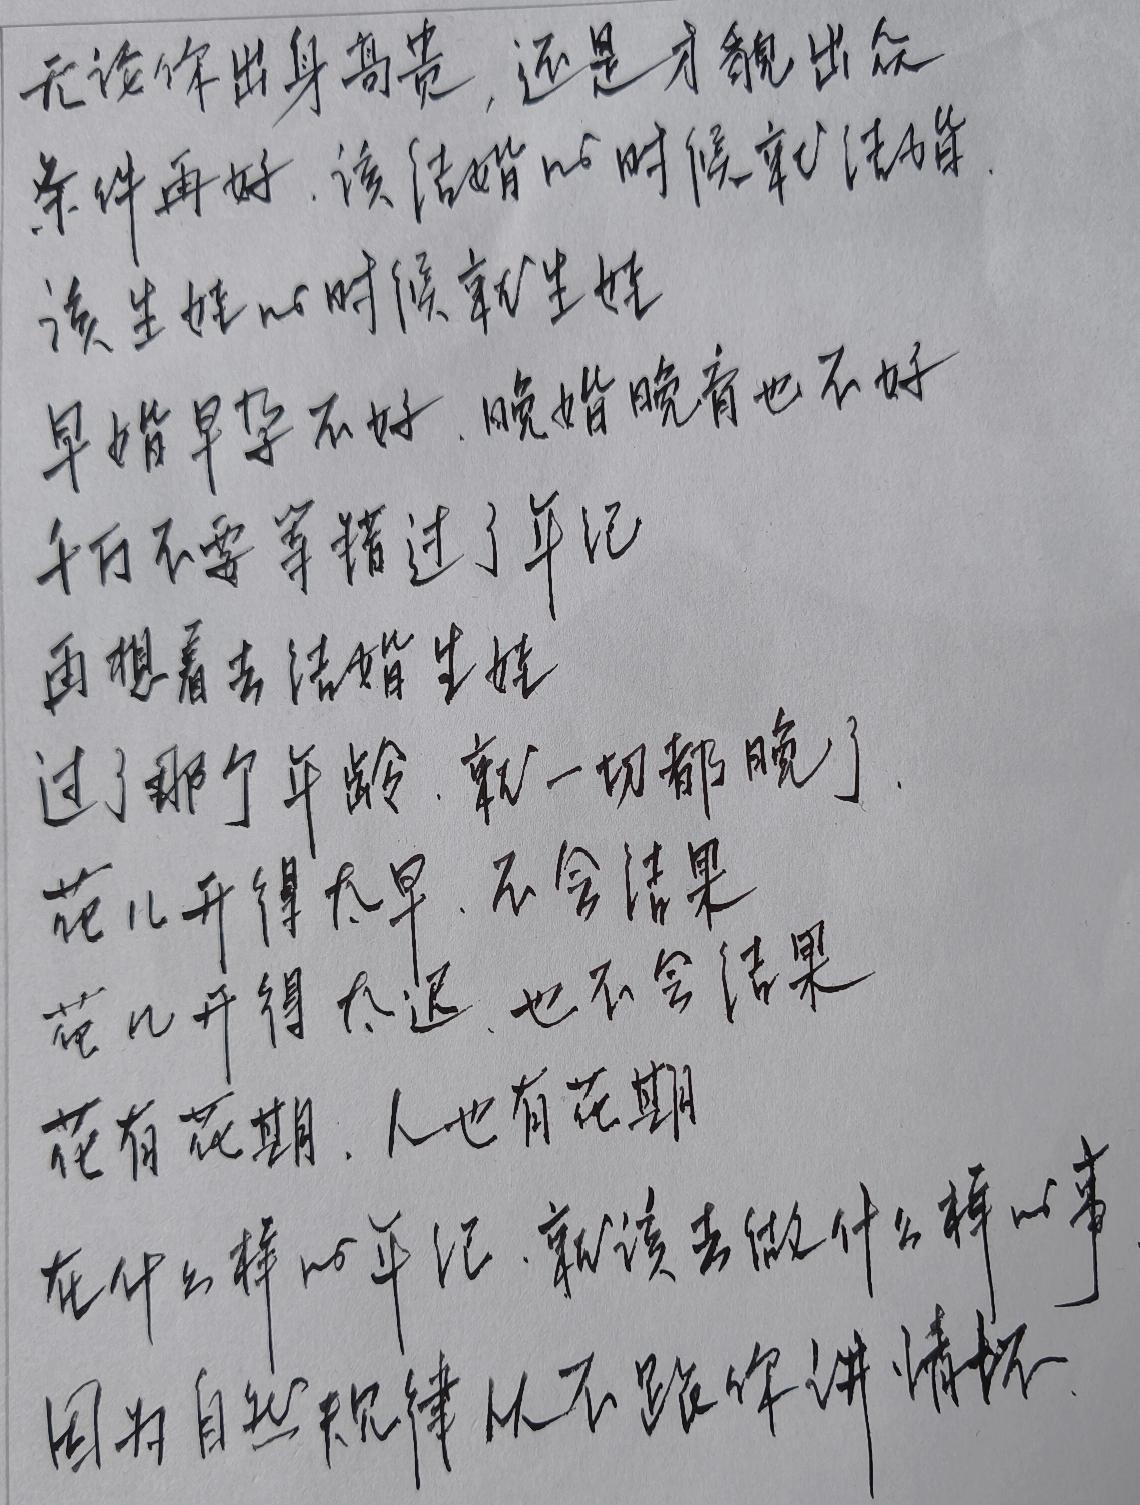 无论你出身高贵,还是才貌出众
条件再好.该结婚的时候就结婚.
该生娃的时候就生娃
早婚早孕不好.晚婚晚育也不好
千万不要等错过了年记
再想着去结婚生娃
过了那个年龄.就一切都晚了.
花儿开得太早.不会结果
花儿开得太迟.也不会结果
花有花期.人也有花期
在什么样的年记.就该去做什么样的事.
因为自然规律从不跟你讲情怀.